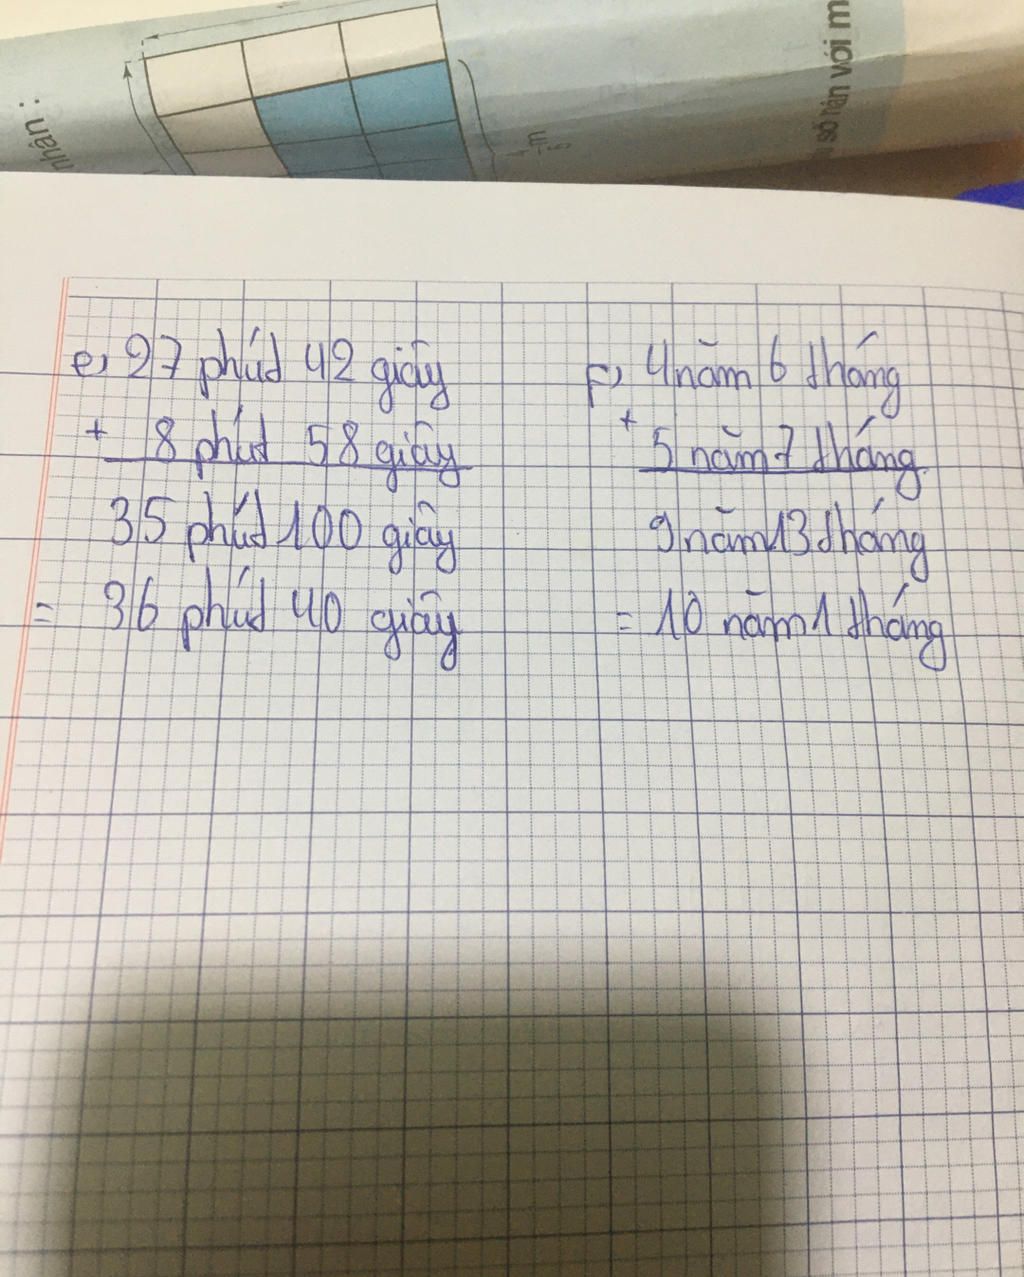 nhân :
số tận với m
e, 27 phút 42 giây
+ 8 phút 58 giây
35 phút 100 giây
= 36 phút 40 giây
F, 4 năm 6 tháng
+ 5 năm 7 tháng
9 năm 13 tháng
= 10 năm 1 tháng